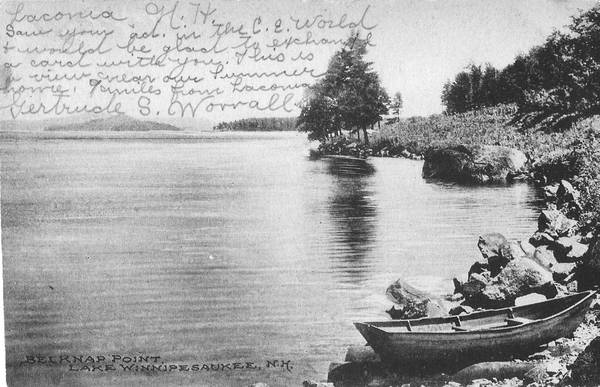 Laconia N.H.
Saw your ad. in the C. E. World
& would be glad to exchange
a card with you. This is
a view near our summer
home, 7 miles from Laconia
Gertrude S. Worrall
BELKNAP POINT,
LAKE WINNIPESAUKEE, N.H.